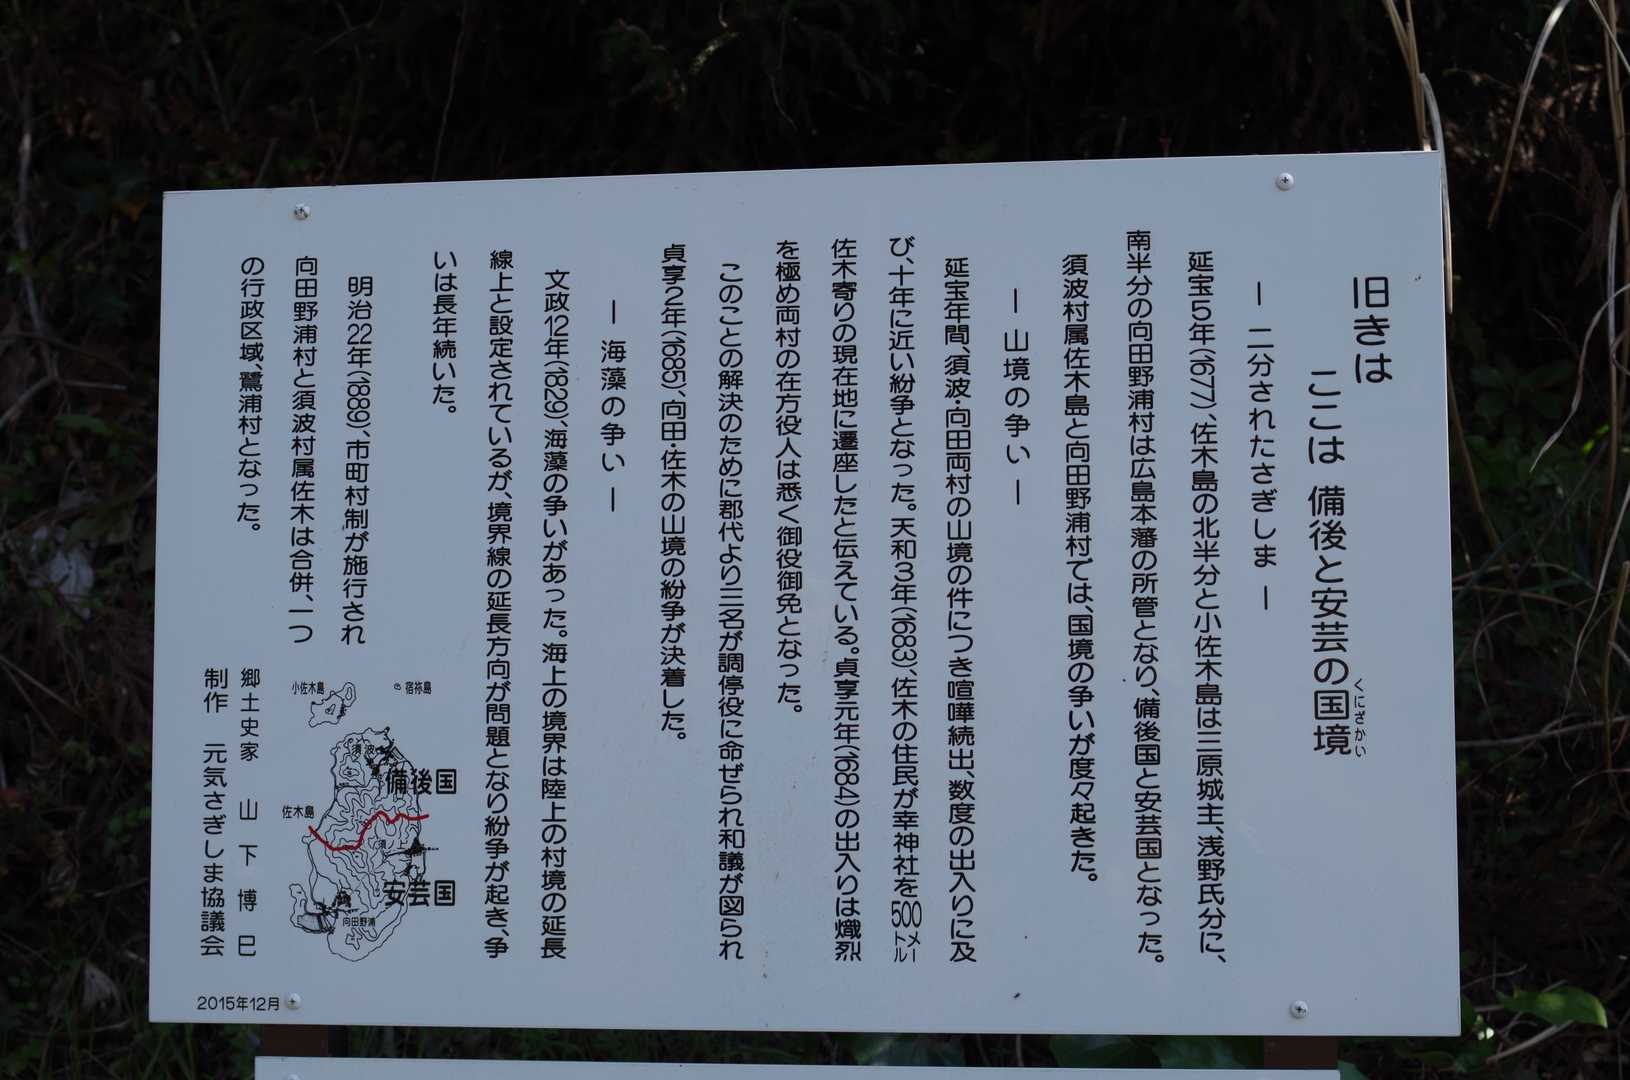 旧きは
ここは 備後と安芸の国境
くにざかい
― 二分されたさぎしま ―
延宝5年(1677)、佐木島の北半分と小佐木島は三原城主、浅野氏分に、
南半分の向田野浦村は広島本藩の所管となり、備後国と安芸国となった。
須波村属佐木島と向田野浦村では、国境の争いが度々起きた。
― 山境の争い ―
延宝年間、須波・向田両村の山境の件につき喧嘩続出、数度の出入りに及
び、十年に近い紛争となった。天和3年(1683)、佐木の住民が幸神社を500メートル
佐木寄りの現在地に遷座したと伝えている。貞享元年(1684)の出入りは熾烈
を極め両村の在方役人は悉く御役御免となった。
このことの解決のために郡代より三名が調停役に命ぜられ和議が図られ
貞享2年(1685)、向田・佐木の山境の紛争が決着した。
― 海藻の争い ―
文政12年(1829)、海藻の争いがあった。海上の境界は陸上の村境の延長
線上と設定されているが、境界線の延長方向が問題となり紛争が起き、争
いは長年続いた。
明治22年(1889)、市町村制が施行され
向田野浦村と須波村属佐木は合併、一つ
の行政区域、鷺浦村となった。
小佐木島
宿祢島
須波
備後国
佐木島
須ノ上
安芸国
向田野浦
郷土史家 山下博巳
制作 元気さぎしま協議会
2015年12月